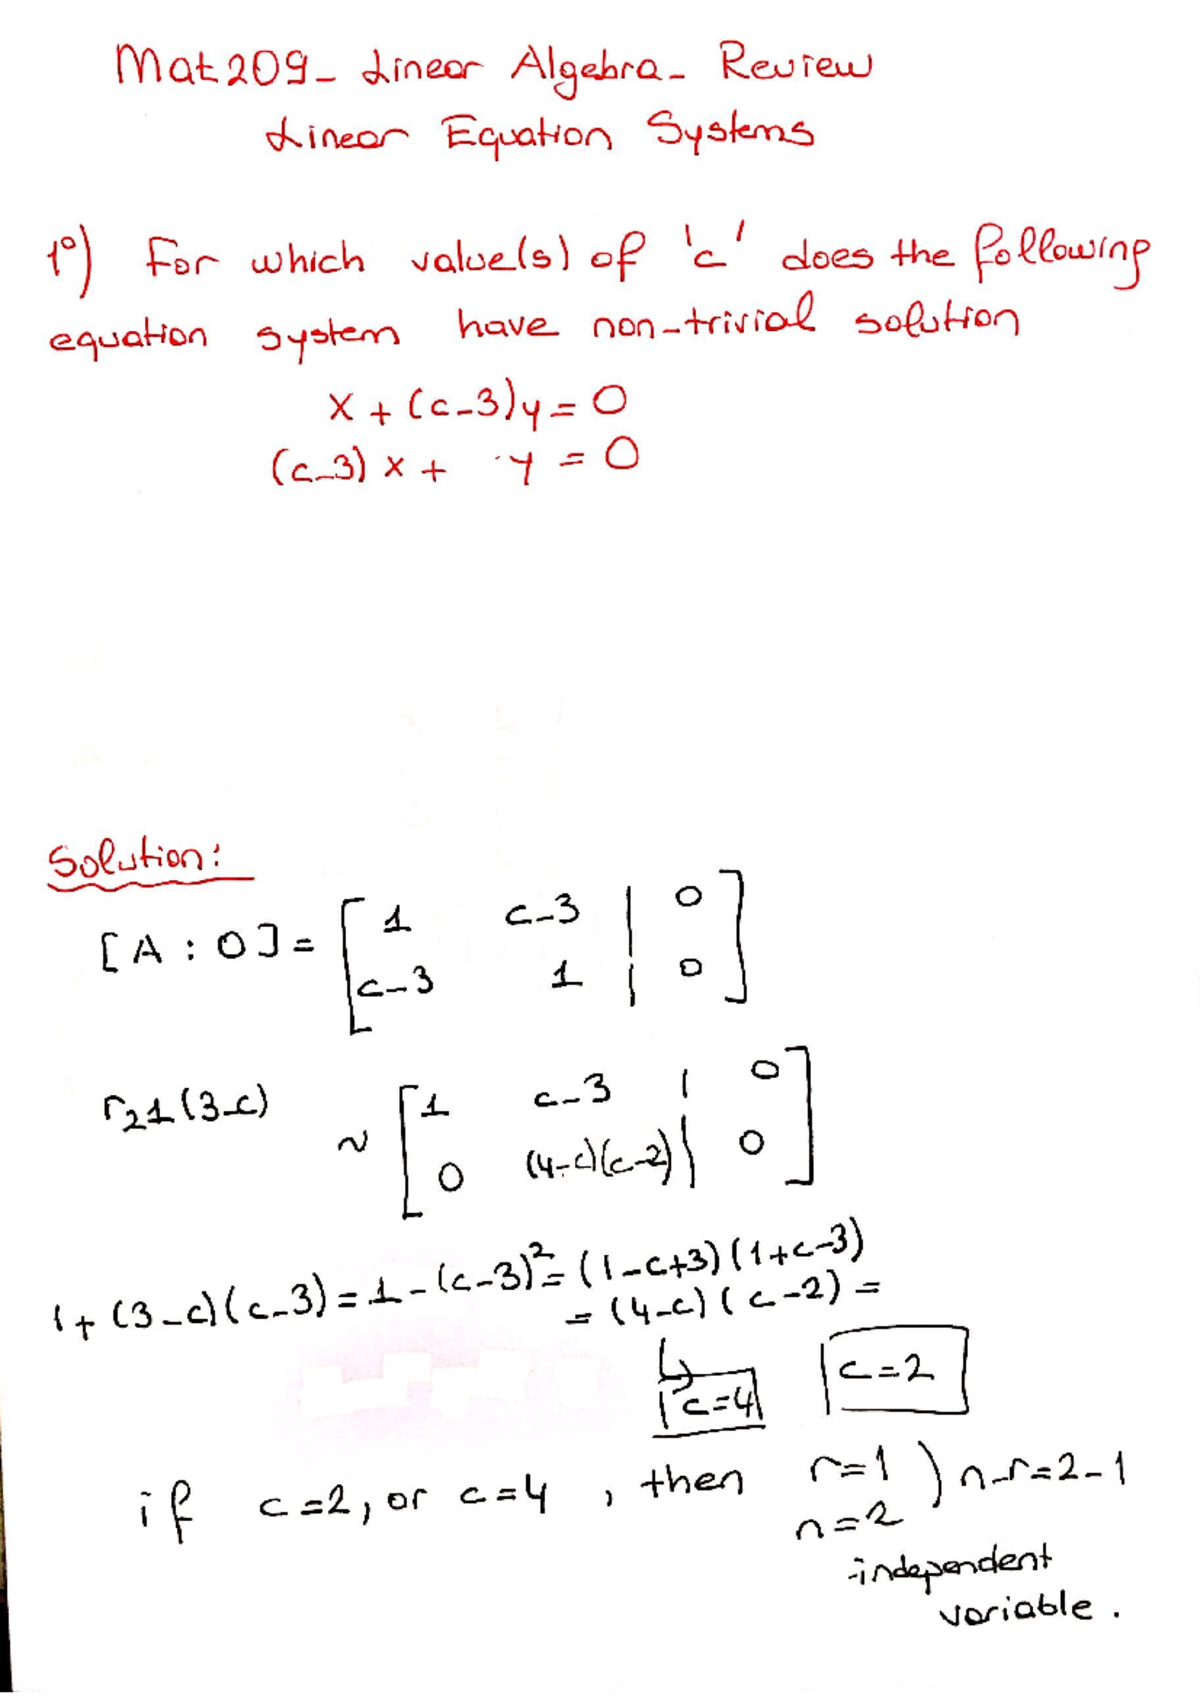 Mat 209 - Linear Algebra - Review
Linear Equation Systems
1°) For which value(s) of 'c' does the following
equation system have non-trivial solution
x + (c-3)y = 0
(c-3) x + y = 0
Solution:
[A : 0] = [ 1 c-3 | 0 ]
[ c-3 1 | 0 ]
r21(3-c) ~ [ 1 c-3 | 0 ]
[ 0 (4-c)(c-2) | 0 ]
1+(3-c)(c-3) = 1-(c-3)² = (1-c+3)(1+c-3)
= (4-c)(c-2) =
↳ c=4 c=2
if c=2, or c=4, then r=1 ) n-r=2-1
n=2
independent
variable.